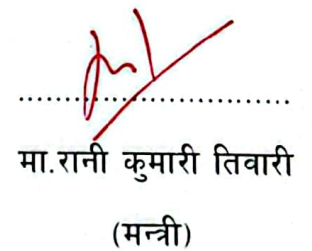 ..............................
मा.रानी कुमारी तिवारी
(मन्त्री)